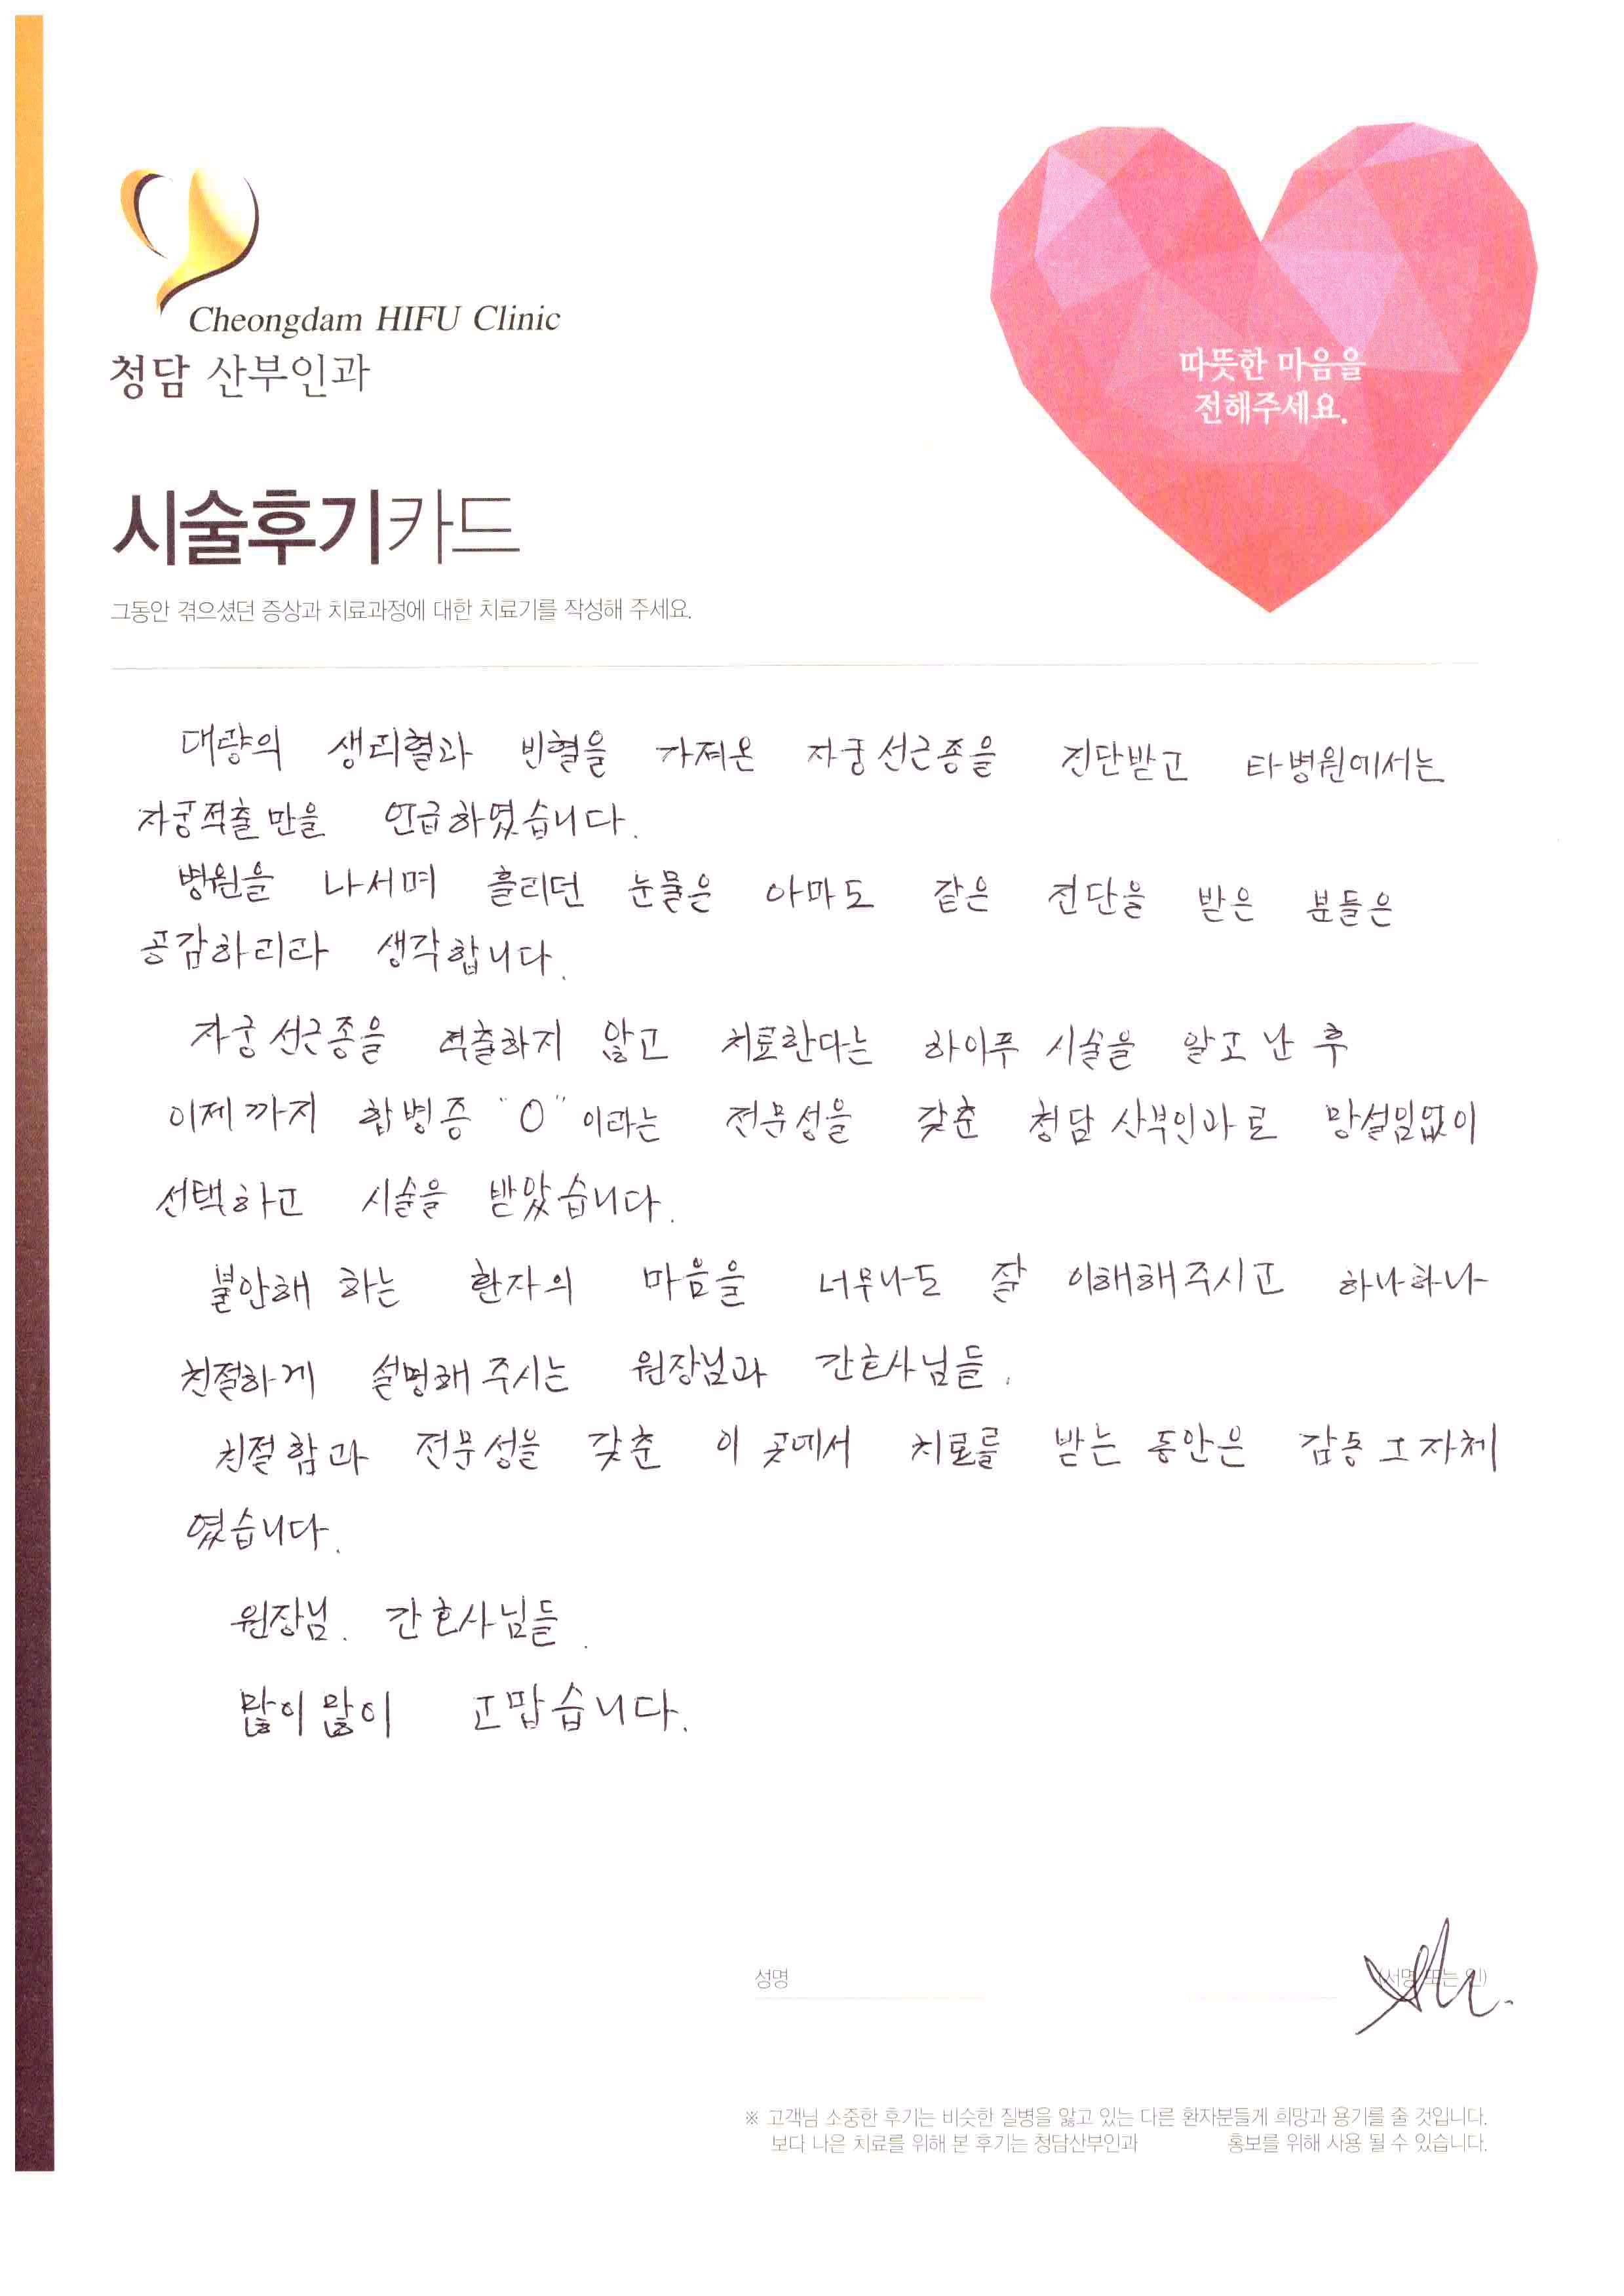 Cheongdam HIFU Clinic
청담 산부인과
따뜻한 마음을
전해주세요.
시술후기카드
그동안 겪으셨던 증상과 치료과정에 대한 치료기를 작성해 주세요.
대량의 생리혈과 빈혈을 가져온 자궁선근종을 진단받고 타병원에서는
자궁적출만을 언급하였습니다.
병원을 나서며 흘리던 눈물은 아마도 같은 진단을 받은 분들은
공감하리라 생각합니다.
자궁선근종을 적출하지 않고 치료한다는 하이푸 시술을 알고 난 후
이제까지 합병증 "0"이라는 전문성을 갖춘 청담산부인과로 망설임없이
선택하고 시술을 받았습니다.
불안해 하는 환자의 마음을 너무나도 잘 이해해주시고 하나하나
친절하게 설명해 주시는 원장님과 간호사님들.
친절함과 전문성을 갖춘 이 곳에서 치료를 받는 동안은 감동 그 자체
였습니다.
원장님. 간호사님들.
많이많이 고맙습니다.
성명 (서명 또는 인)
※ 고객님 소중한 후기는 비슷한 질병을 앓고 있는 다른 환자분들게 희망과 용기를 줄 것입니다.
보다 나은 치료를 위해 본 후기는 청담산부인과 홍보를 위해 사용 될 수 있습니다.